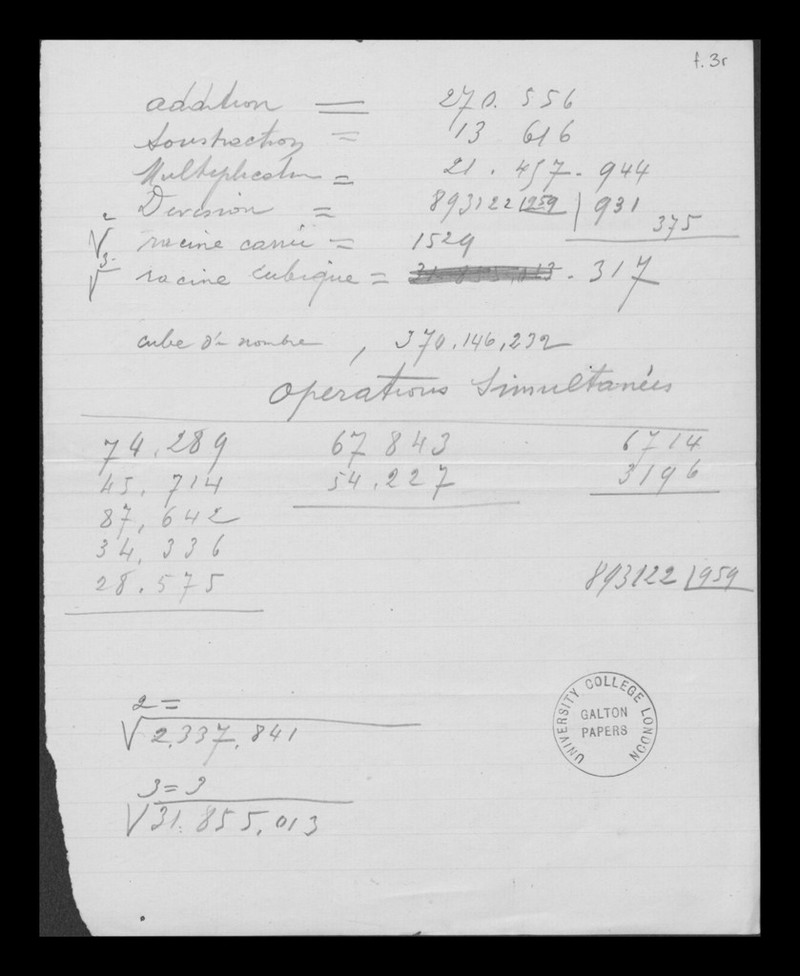 f. 3r
addition = 270. 556
Soustraction = 13 616
Multiplication = 21. 457. 944
Division = 893122 | 959 | 931
375
2
√ racine carrée = 1529
3
√ racine Cubique = 31.855,013. 317
cube d'n nombre , 370.146,232
Operations Simultanées
74.289 67843 6714
45. 714 54.227 3196
87, 642
34, 336
28.575 893122 | 959
2 =
√2,337,841
3 = 3
√31.855,013
UNIVERSITY COLLEGE LONDON
GALTON
PAPERS